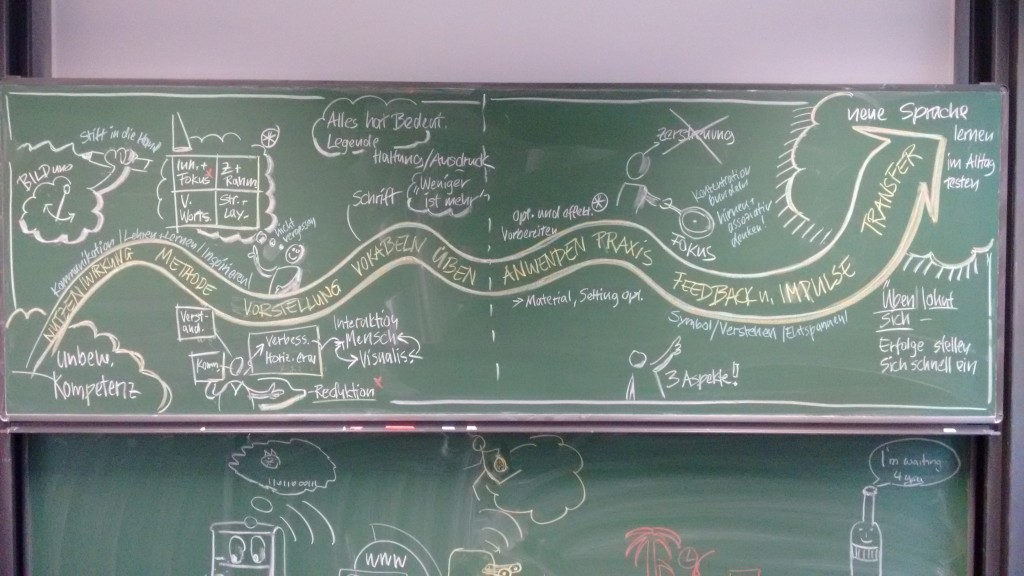 Stift in die Hand
BILDUNG
Kommunikation/Lehren+lernen/Inspirieren
METHODE
VORSTELLUNG
VOKABELN ÜBEN
ANWENDEN PRAXIS
FEEDBACK u. IMPULSE
TRANSFER
Unbew.
Kompetenz
Inh.+
Fokus
Z+
Rahm
V.
Worts.
Str.+
Lay.
nicht
vergessen
Verst-
and.
Komm.
Verbess.
Horiz.erw
Interaktion
Mensch
Visualis.
Reduktion
Alles hat Bedeut.
Legende
Haltung/Ausdruck
Schrift
Weniger
ist mehr
Zerstreuung
opt. und effekt.
Vorbereiten
Fokus
Konzentration
bündeln
hirnen+
assoziativ
denken!
» Material, Setting opt.
Symbol/Verstehen/Entspannen/
3 Aspekte!!
neue Sprache
lernen
im Alltag
testen
Üben lohnt
sich –
Erfolge stellen
sich schnell ein
www
I'm waiting
4